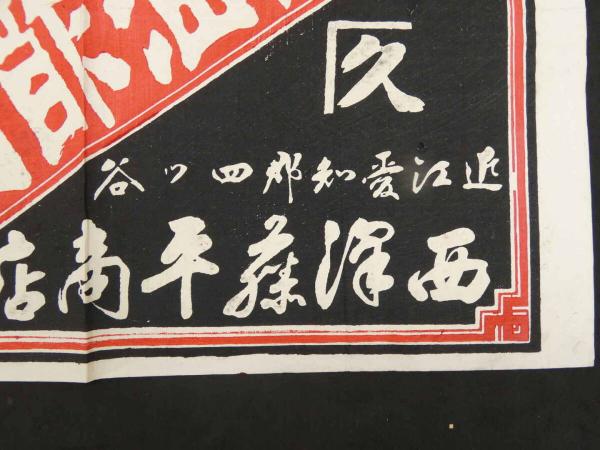 久
近江愛知郡四ツ谷
西澤藤平商店